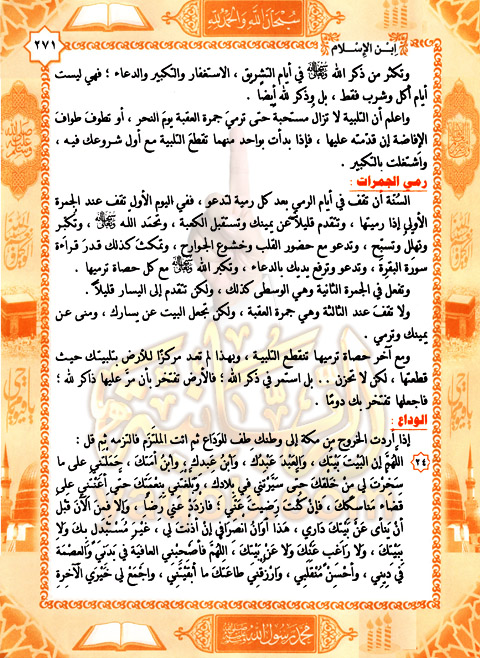 سبحان الله والحمد لله
٢٧١
ابن الإسلام
وتكثر من ذكر الله ﷻ في أيام التشريق ، الاستغفار والتكبير والدعاء ؛ فهي ليست
أيام أكل وشرب فقط ، بل وذكر لله أيضا .
واعلم أن التلبية لا تزال مستحبة حتى ترمي جمرة العقبة يوم النحر ، أو تطوف طواف
الإفاضة إن قدمته عليها ، فإذا بدأت بواحد منهما تقطع التلبية مع أول شروعك فيه ،
واشتغلت بالتكبير .
رمي الجمرات :
السنة أن تقف في أيام الرمي بعد كل رمية لتدعو ، ففي اليوم الأول تقف عند الجمرة
الأولى إذا رميتها ، وتتقدم قليلاً عن يمينك وتستقبل الكعبة ، وتحمد الله ﷻ ، وتكبر
وتهلل وتسبح ، وتدعو مع حضور القلب وخشوع الجوارح ، وتمكث كذلك قدر قراءة
سورة البقرة ، وتدعو وترفع يديك بالدعاء ، وتكبر الله ﷻ مع كل حصاة ترميها .
وتفعل في الجمرة الثانية وهي الوسطى كذلك ، ولكن تتقدم إلى اليسار قليلاً .
ولا تقف عند الثالثة وهي جمرة العقبة ، ولكن تجعل البيت عن يسارك ، ومنى عن
يمينك وترمي .
ومع آخر حصاة ترميها تنقطع التلبية ، وبهذا لم تعد مركزًا للأرض بتلبيتك حيث
قطعتها ، لكن لا تحزن .. بل استمر في ذكر الله ؛ فالأرض تفتخر بأن مر عليها ذاكر لله ؛
فاجعلها تفتخر بك دومًا .
الوداع :
إذا أردت الخروج من مكة إلى وطنك طف للوداع ثم ائت الملتزم فالتزمه ثم قل :
٢٤ اللَّهُمَّ إن الْبَيْتَ بَيْتُكَ ، وَالْعَبْدَ عَبْدُكَ ، وَابْنُ عَبدِكَ وَابْنُ أَمَتِكَ ، حَمَلْتَنِي على ما
سَخَّرْتَ لِي مِنْ خَلْقِكَ حتى سَيَّرْتَنِي في بلادِك ، وَبَلَّغْتَنِي بِنِعْمَتِكَ حتى أَعَنْتَنِي على
قَضَاءِ مَنَاسِكِكَ ، فإن كُنْتَ رَضِيتَ عَنِّي ؛ فازدَدْ عَنِّي رِضًا ، وَإلا فَمِنَ الآنَ قَبْلَ
أَنْ يَنْأَى عَنْ بَيْتِكَ دَارِي ، هَذَا أَوَانُ انْصِرَافِي إنْ أَذِنْتَ لِي ، غَيْرَ مُسْتَبْدِلٍ بِكَ وَلا
بِبَيْتِكَ ، وَلا رَاغِبٍ عَنْكَ وَلا عَنْ بَيْتِكَ ، اللَّهُمَّ فَأَصْحِبْنِي العافيةَ في بَدَنِي وَالعِصْمَةَ
في دِينِي ، وَأَحْسِنْ مُنْقَلَبِي ، وَارْزُقْنِي طَاعَتَكَ ما أَبْقَيْتَنِي ، وَاجْمَعْ لِي خَيْرَي الآخِرَةِ
محمد رسول الله